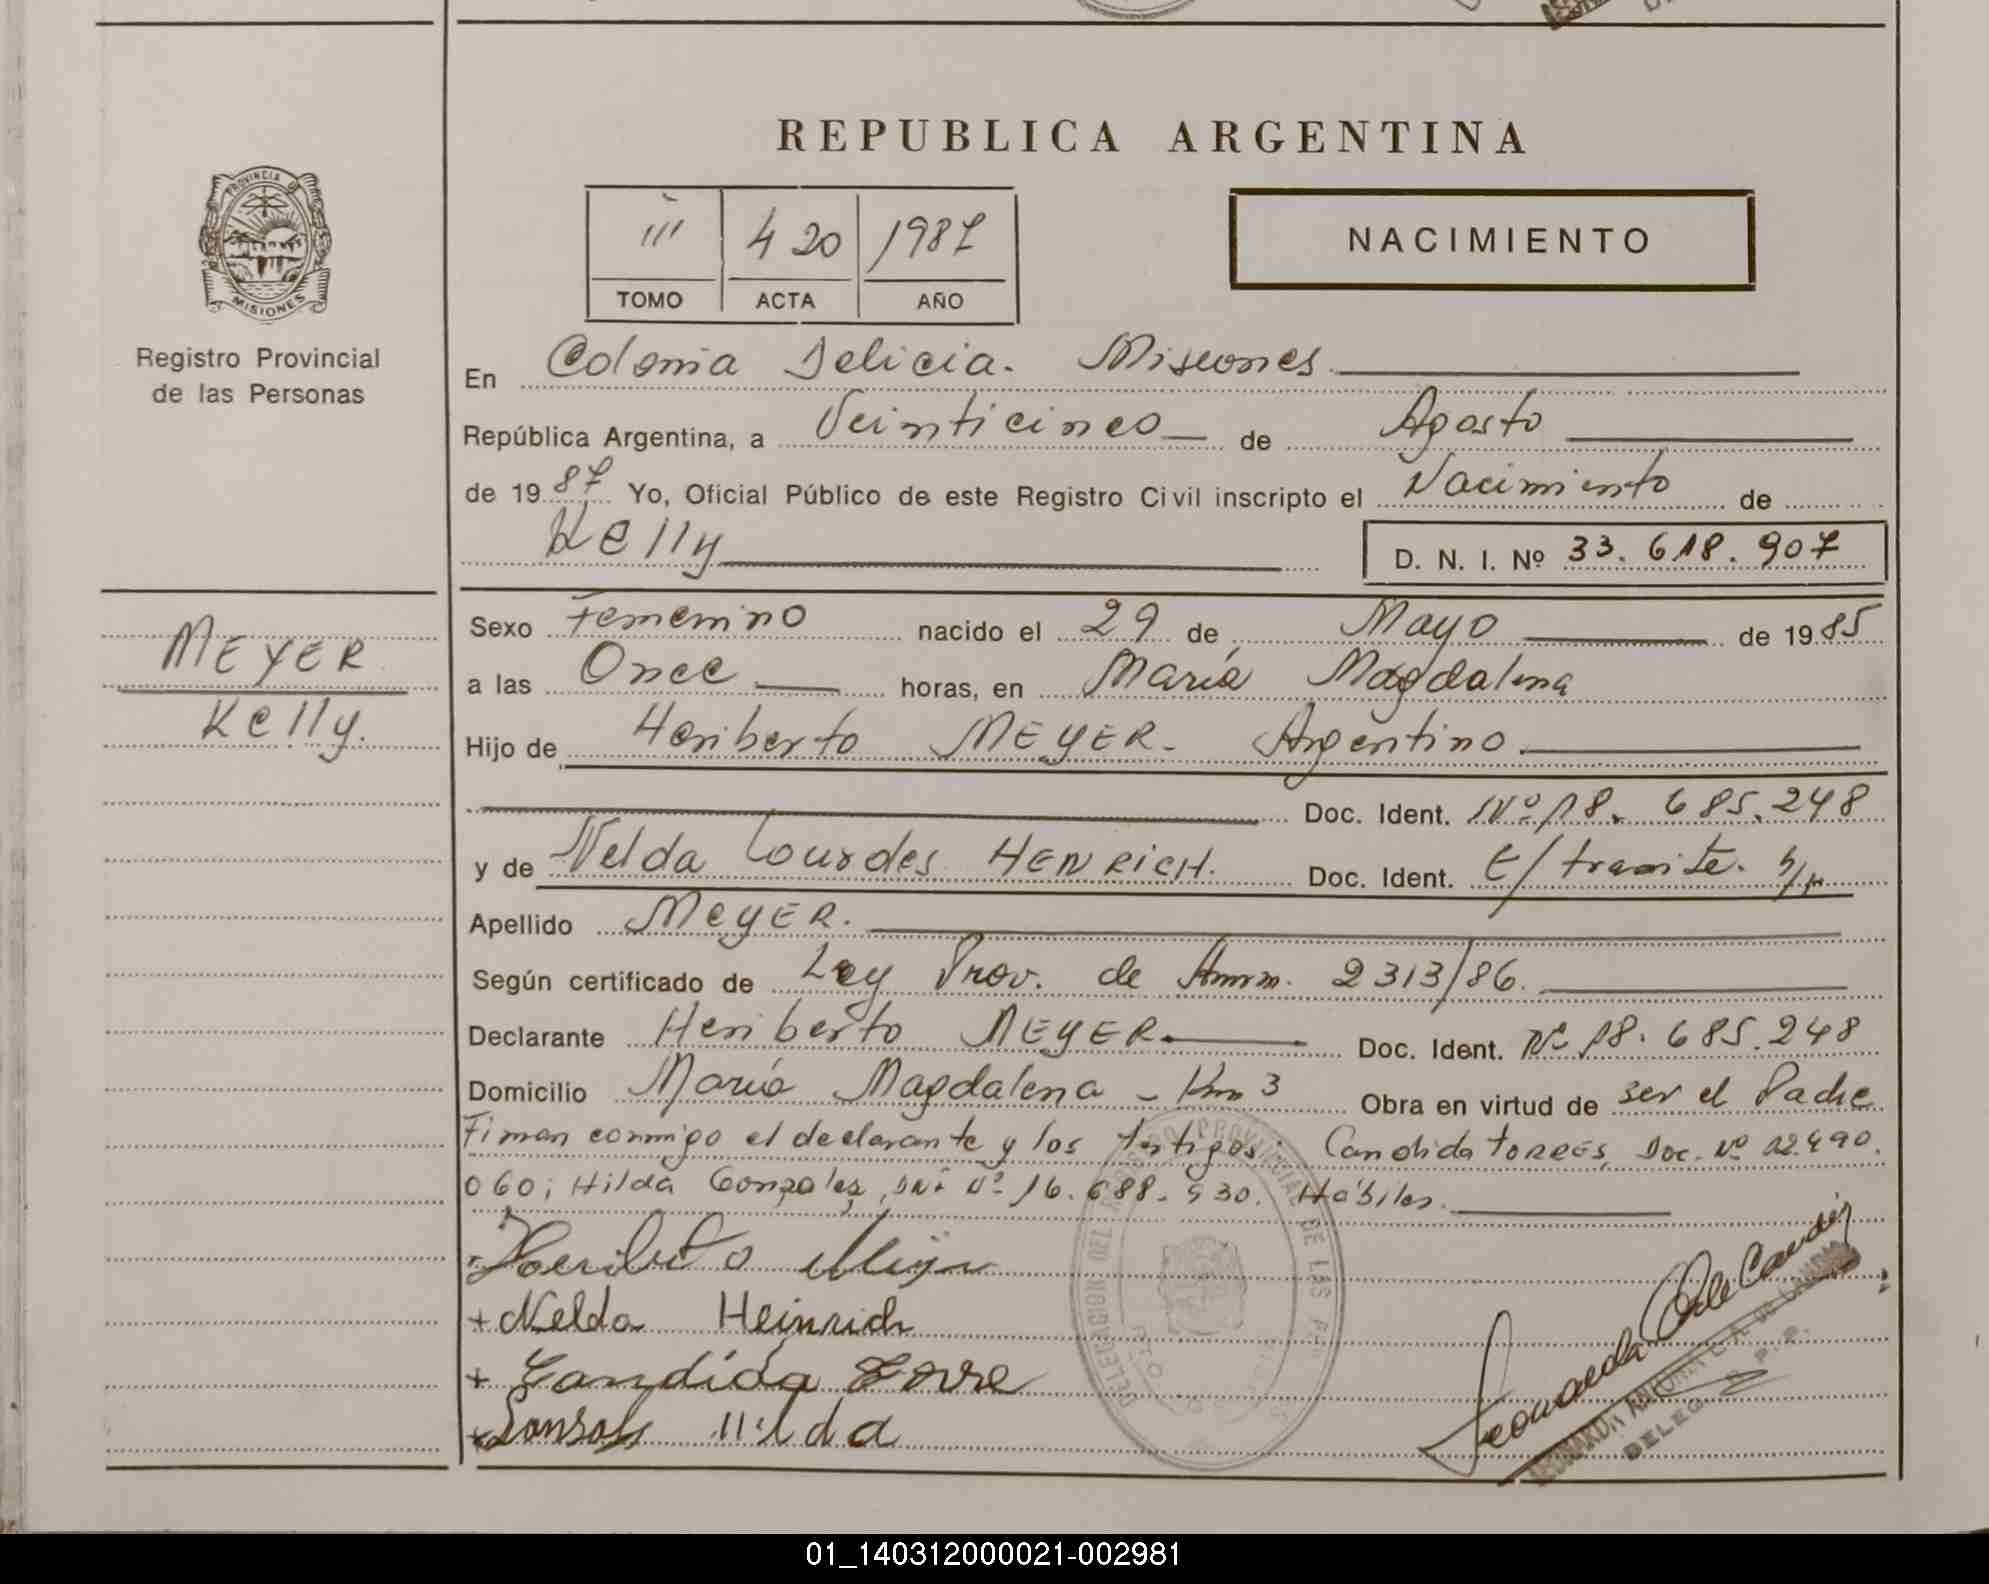 REPUBLICA ARGENTINA
PROVINCIA DE
MISIONES
Registro Provincial
de las Personas
III 420 1987
TOMO ACTA AÑO
NACIMIENTO
En Colonia Delicia. Misiones
República Argentina, a Veinticinco de Agosto
de 1987 Yo, Oficial Público de este Registro Civil inscripto el Nacimiento de
Kelly D. N. I. Nº 33.618.907
MEYER
Kelly.
Sexo Femenino nacido el 29 de Mayo de 1985
a las Once horas, en María Magdalena
Hijo de Heriberto MEYER. Argentino
Doc. Ident. Nº 18.685.248
y de Nelda Lourdes HENRICH. Doc. Ident. E/tramite.
Apellido MEYER.
Según certificado de Ley Prov. de Amn. 2313/86.
Declarante Heriberto MEYER Doc. Ident. Nº 18.685.248
Domicilio María Magdalena - Km 3 Obra en virtud de ser el Padre
Firman conmigo el declarante y los testigos: Candida TORRES, Doc. Nº 12.490.
060; Hilda Gonzales, DNI Nº 16.688.530. Hábiles.
Heriberto
+ Nelda Heinrich
+ Candida Torre
Hilda
DELEGACION DEL REGISTRO PROVINCIAL DE LAS
Leonarda
DELEG.
01_140312000021-002981